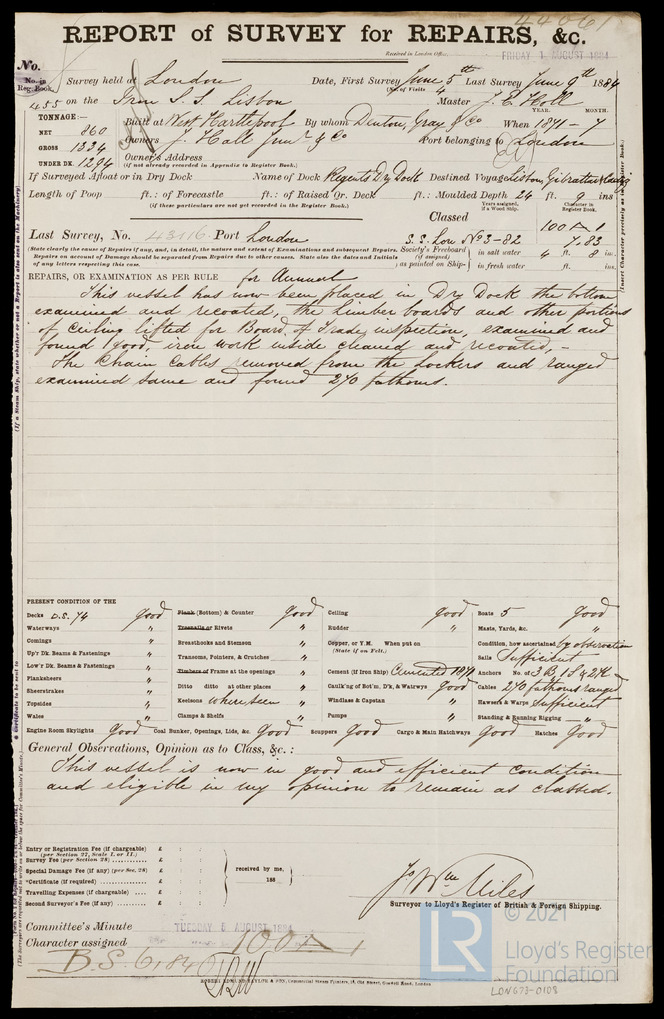 44061
REPORT of SURVEY for REPAIRS, &c.
Received in London Office,
FRIDAY 1 AUGUST 1884
No.
No. in Reg. Book.
Survey held at London Date, First Survey June 5th Last Survey June 9th 1884
(No. of Visits 4
455 on the Iron S.S. Lisbon Master J. E. Holl
YEAR. MONTH.
TONNAGE:—
Built at West Hartlepool By whom Denton, Gray & Co When 1871 - 7
NET 860
GROSS 1334
UNDER DK. 1294
Owners J. Hall Junr & Co Port belonging to London
Owners Address
(if not already recorded in Appendix to Register Book.)
If Surveyed Afloat or in Dry Dock Name of Dock Regents Dry Dock Destined Voyage Lisbon, Gibraltar & Cadiz
Length of Poop ft.: of Forecastle ft.: of Raised Qr. Deck ft.: Moulded Depth 24 ft. 9 ins
(if these particulars are not yet recorded in the Register Book.)
Years assigned, if a Wood Ship.
Character in Register Book.
Classed
100 A 1
Last Survey, No. 43116 Port London
S.S. Lon No 3-82 7.83
(State clearly the cause of Repairs if any, and, in detail, the nature and extent of Examinations and subsequent Repairs.
Repairs on account of Damage should be separated from Repairs due to other causes. State also the dates and Initials
of any letters respecting this case.
Society's Freeboard (if assigned) as painted on Ship-
in salt water 4 ft. 8 in.
in fresh water ft. ins.
REPAIRS, OR EXAMINATION AS PER RULE for Annual
This vessel has now been placed in Dry Dock the bottom
examined and recoated, the limber boards and other portions
of Ceiling lifted for Board of Trade inspection, examined and
found good, iron work inside cleaned and recoated. -
The Chain Cables removed from the lockers and ranged
examined same and found 270 fathoms.
PRESENT CONDITION OF THE
Decks D.S. 74 good
Waterways "
Comings "
Up'r Dk. Beams & Fastenings "
Low'r Dk. Beams & Fastenings "
Planksheers "
Sheerstrakes "
Topsides "
Wales "
Plank (Bottom) & Counter good
Treenails or Rivets "
Breasthooks and Stemson "
Transoms, Pointers, & Crutches "
Timbers of Frame at the openings "
Ditto ditto at other places "
Keelsons where seen "
Clamps & Shelfs "
Ceiling good
Rudder "
Copper, or Y.M. When put on
(State if on Felt.)
Cement (if Iron Ship) Cemented 1871
Caulk'ng of Bot'm, D'k, & Watrwys good
Windlass & Capstan "
Pumps "
Boats 5 good
Masts, Yards, &c. "
Condition, how ascertained by observation
Sails Sufficient
Anchors No. of 3 B, 1 S & 2 K
Cables 270 fathoms ranged
Hawsers & Warps Sufficient
Standing & Running Rigging "
Engine Room Skylights Good Coal Bunker, Openings, Lids, &c. Good Scuppers Good Cargo & Main Hatchways Good Hatches Good
General Observations, Opinion as to Class, &c.:
This vessel is now in good and efficient condition
and eligible in my opinion to remain as classed.
Entry or Registration Fee (if chargeable) £ : :
(per Section 27, Scale I. or II.)
Survey Fee (per Section 28) £ : :
Special Damage Fee (if any) (per Sec. 28) £ : :
*Certificate (if required) £ : :
Travelling Expenses (if chargeable) £ : :
Second Surveyor's Fee (if any) £ : :
received by me,
188
Jo Wm Miles
Surveyor to Lloyd's Register of British & Foreign Shipping.
Committee's Minute TUESDAY 5 AUGUST 1884
Character assigned 100 A 1
B.S. 6.84
ROBERT EDMUND TAYLOR & SON, Commercial Steam Printers, 19, Old Street, Goswell Road, London
LR
© 2021
Lloyd's Register
Foundation
LON673-0108